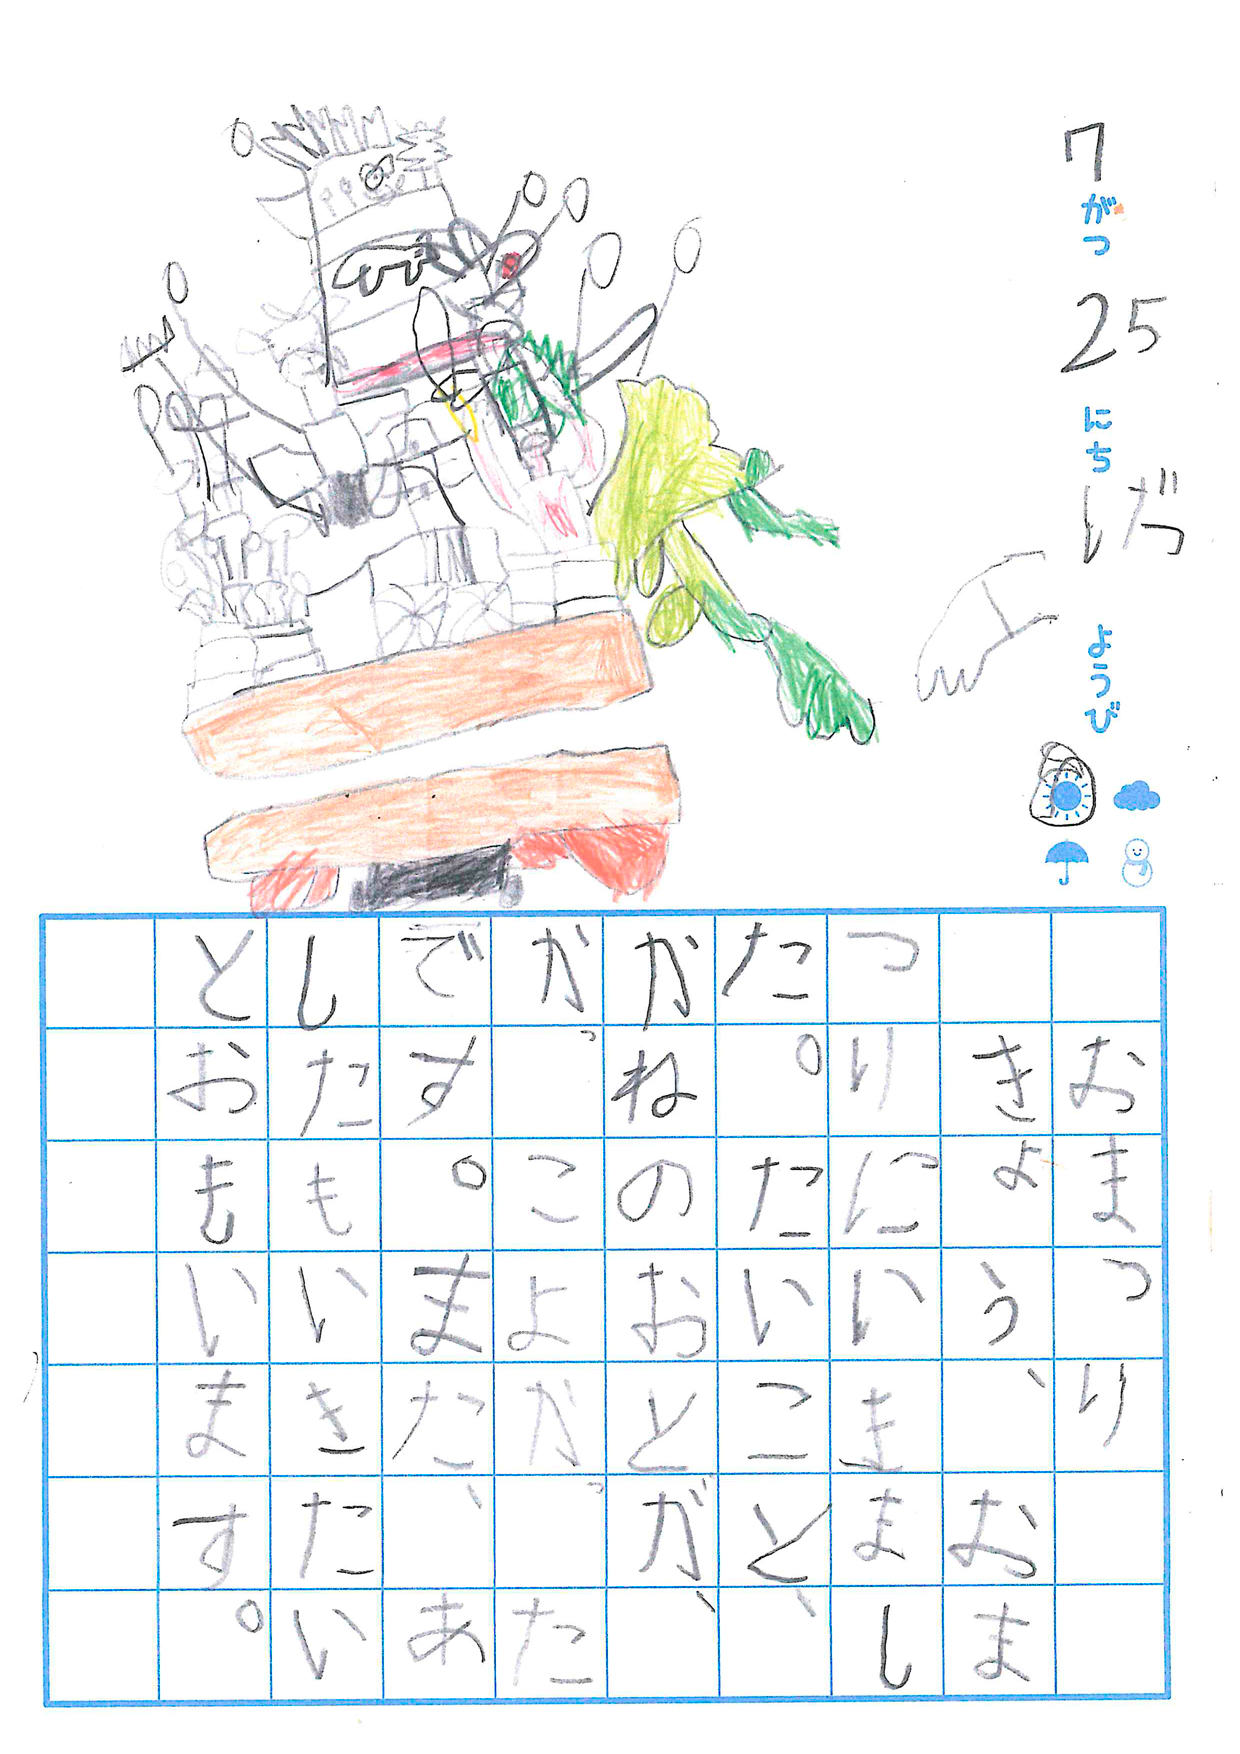 7がつ25にちげつようび
おまつり
きょう、おま
つりにいきまし
た。たいこと、
かねのおとが、
かっこよかった
です。また、あ
したもいきたい
とおもいます。